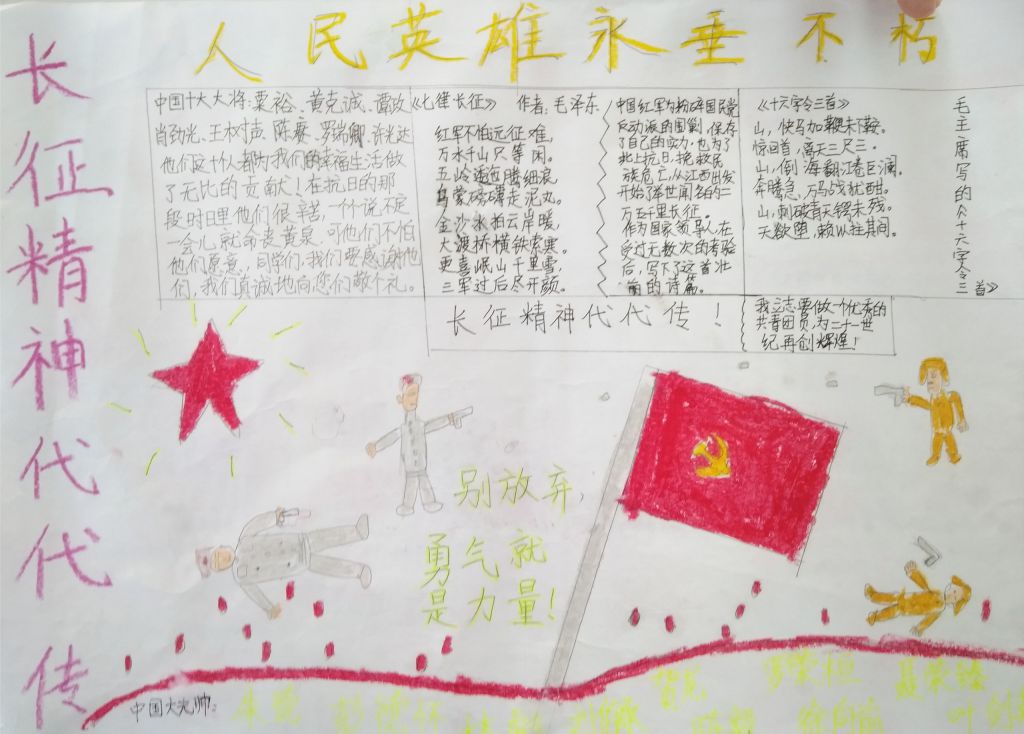 人民英雄永垂不朽
长征精神代代传
中国十大大将:粟裕、黄克诚、谭政
肖劲光、王树声、陈赓、罗瑞卿、许光达
他们这十人都为我们的幸福生活做
了无比的贡献!在抗日的那
段时日里他们很辛苦,一个说不定
一会儿就命丧黄泉.可他们不怕
他们愿意,同学们,我们要感谢他
们,我们真诚地向您们敬个礼。
《七律长征》 作者:毛泽东
红军不怕远征难,
万水千山只等闲。
五岭逶迤腾细浪,
乌蒙磅礴走泥丸。
金沙水拍云岸暖,
大渡桥横铁索寒。
更喜岷山千里雪,
三军过后尽开颜。
中国红军为粉碎国民党
反动派的围剿,保存
了自己的实力,也为了
北上抗日,挽救民
族危亡,从江西出发
开始了举世闻名的二
万五千里长征。
作为国家领导人在
受过无数次的考验
后,写下了这首壮
丽的诗篇。
《十六字令三首》
山,快马加鞭未下鞍。
惊回首,离天三尺三.
山,倒海翻江卷巨澜.
奔腾急,万马战犹酣.
山,刺破青天锷未残。
天欲堕,赖以拄其间.
毛主席写的《十六字令三首》
长征精神代代传!
我立志要做个优秀的
共青团员,为二十一世
纪再创辉煌!
别放弃,
勇气就
是力量!
中国十大元帅:
朱德 彭德怀 刘伯承 贺龙 陈毅 罗荣桓 徐向前 聂荣臻 叶剑